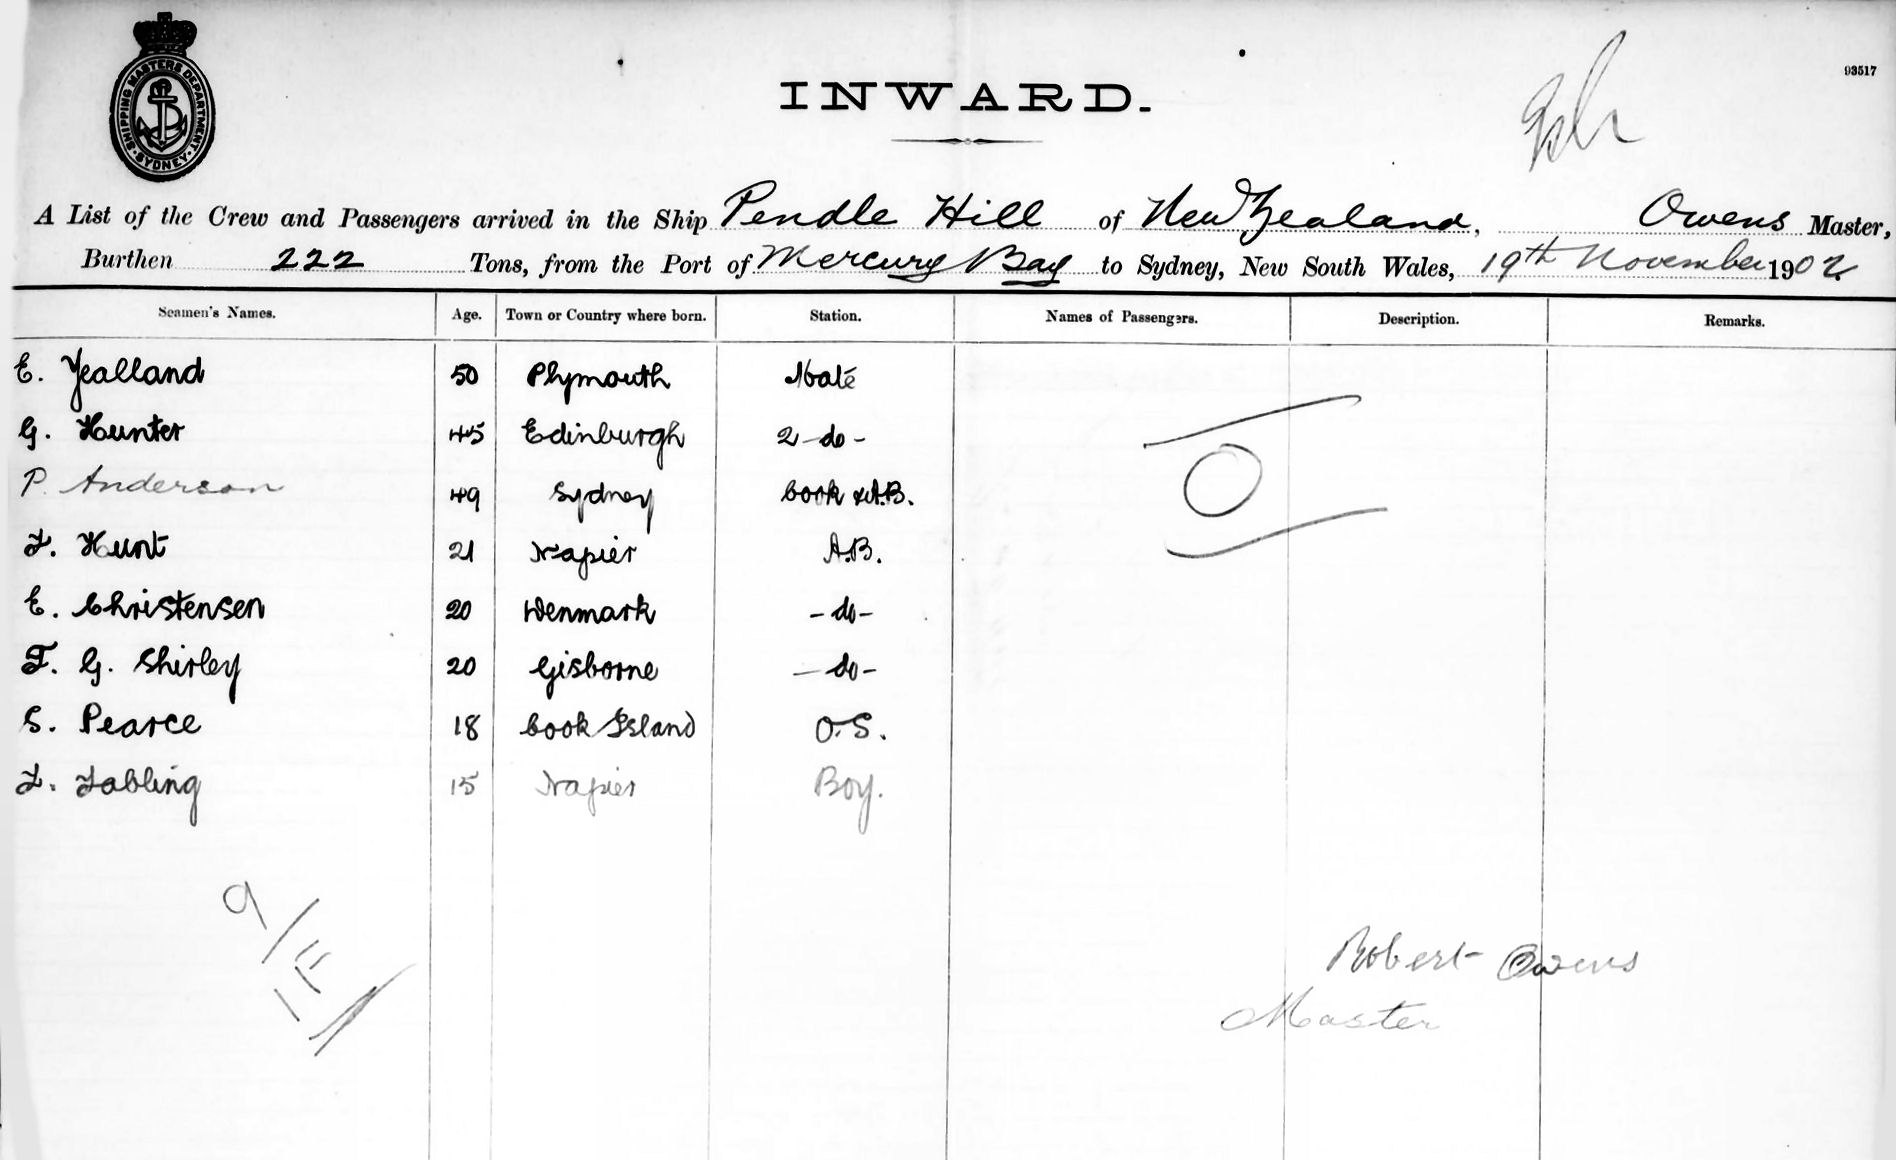 SHIPPING MASTERS DEPARTMENT
SYDNEY
93517
INWARD.
A List of the Crew and Passengers arrived in the Ship Pendle Hill of New Zealand, Owens Master,
Burthen 222 Tons, from the Port of Mercury Bay to Sydney, New South Wales, 19th November 1902
Seamen's Names. Age. Town or Country where born. Station. Names of Passengers. Description. Remarks.
E. Yealland 50 Plymouth Mate
G. Hunter 45 Edinburgh 2 -do-
P. Anderson 49 Sydney Cook & A.B.
F. Hunt 21 Napier A.B.
E. Christensen 20 Denmark -do-
F. G. Shirley 20 Gisborne -do-
S. Pearce 18 Cook Island O.S.
Napier 15 Boy.
O
Robert Owens
Master